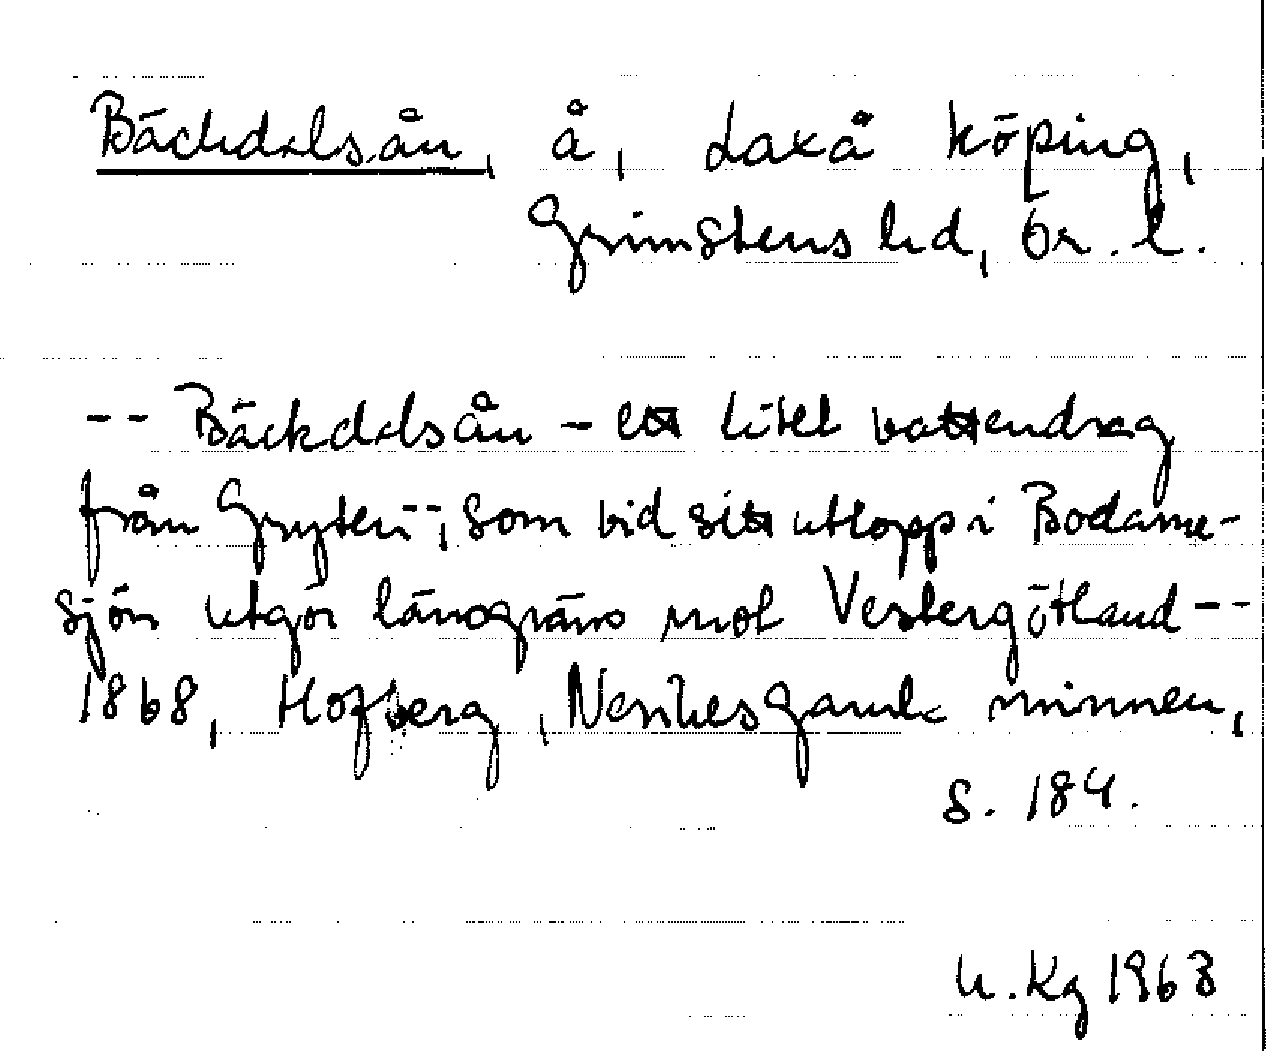 Bäckdalsån, å, Laxå köping,
Grimstens hd, Ör. l.
-- Bäckdalsån - ett litet vattendrag
från Gryten--, som vid sitt utlopp i Bodarne-
sjön utgör länsgräns mot Vestergötland --
1868, Hofberg, Nerikes gamla minnen,
s. 184.
U. Kg 1963